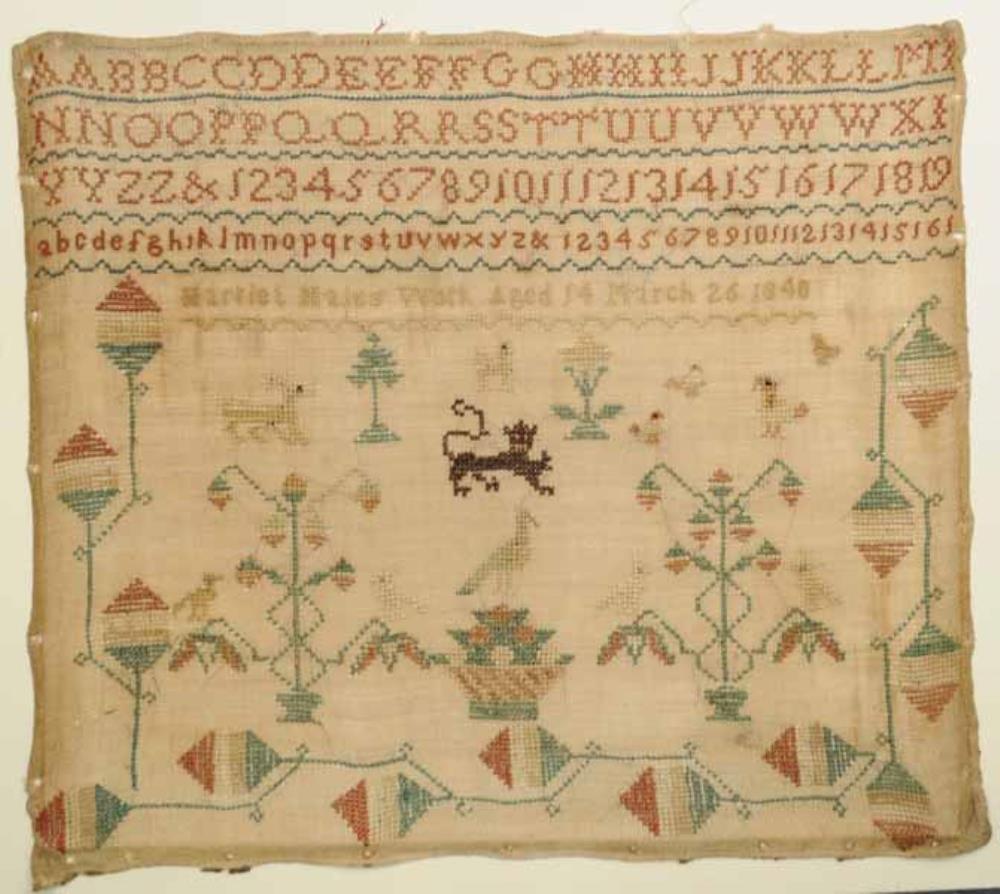 AABBCCDDEEFFGGHHIIJJKKLLM
NNOOPPQQRRSSTTUUVVWWX
YYZZ&12345678910111213141516171819
abcdefghiklmnopqrstuvwxyz&12345678910111213141516
Harriet Hales Work Aged 14 March 26 1840